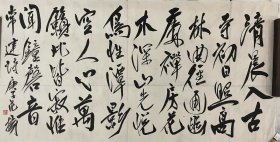 清晨入古
寺初日照高
林曲徑通幽
處禪房花
木深山光悦
鳥性潭影
空人心萬
籟此皆寂惟
聞鐘磬音
常建詩